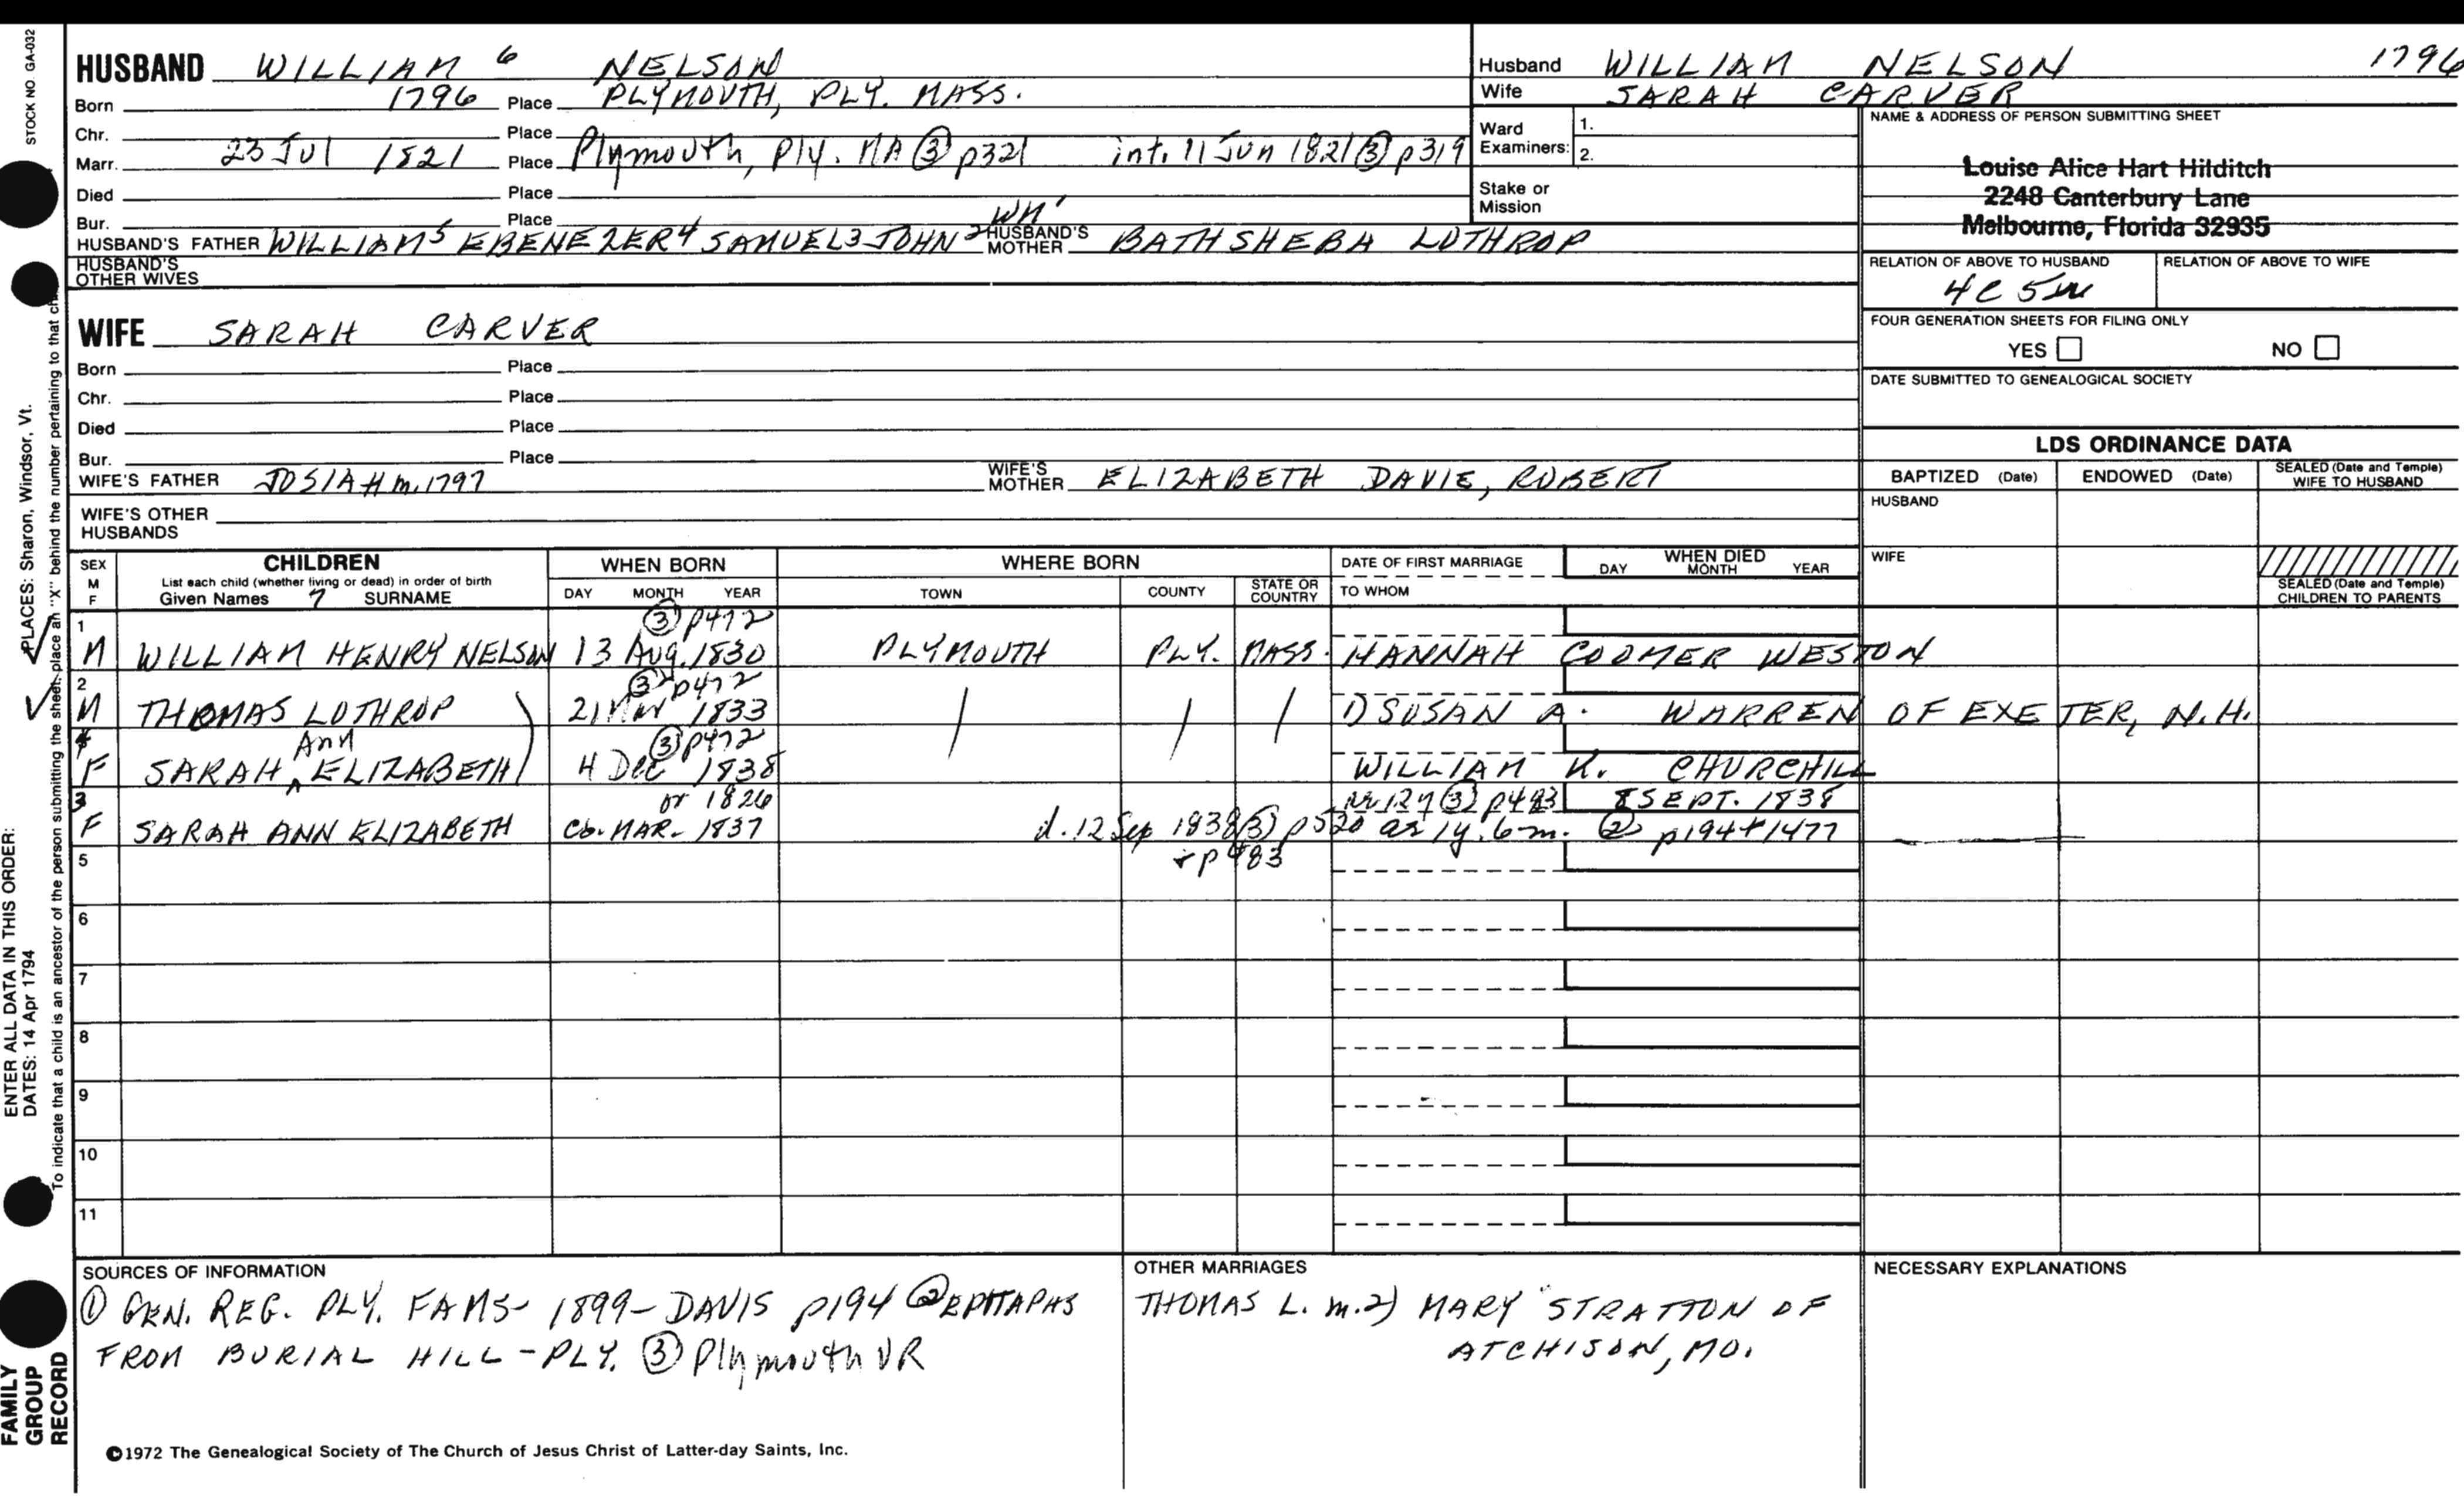 STOCK NO. GA-032
HUSBAND WILLIAM 6 NELSON
Born 1796 Place PLYMOUTH, PLY. MASS.
Chr. Place
Marr. 23 Jul 1821 Place Plymouth, Ply. MA ③ p321 int. 11 Jun 1821 ③ p319
Died Place
Bur. Place
HUSBAND'S FATHER WILLIAM5 EBENEZER4 SAMUEL3 JOHN2 WM' HUSBAND'S MOTHER BATHSHEBA LOTHROP
HUSBAND'S OTHER WIVES
Husband WILLIAM NELSON 1796
Wife SARAH CARVER
Ward Examiners: 1.
2.
Stake or Mission
NAME & ADDRESS OF PERSON SUBMITTING SHEET
Louise Alice Hart Hilditch
2248 Canterbury Lane
Melbourne, Florida 32935
RELATION OF ABOVE TO HUSBAND RELATION OF ABOVE TO WIFE
4C 5
FOUR GENERATION SHEETS FOR FILING ONLY
YES NO
DATE SUBMITTED TO GENEALOGICAL SOCIETY
WIFE SARAH CARVER
Born Place
Chr. Place
Died Place
Bur. Place
WIFE'S FATHER JOSIAH m. 1797 WIFE'S MOTHER ELIZABETH DAVIE, ROBERT
WIFE'S OTHER HUSBANDS
LDS ORDINANCE DATA
BAPTIZED (Date) ENDOWED (Date) SEALED (Date and Temple) WIFE TO HUSBAND
HUSBAND
WIFE
SEALED (Date and Temple) CHILDREN TO PARENTS
SEX M F
CHILDREN
List each child (whether living or dead) in order of birth
Given Names 7 SURNAME
WHEN BORN
DAY MONTH YEAR
WHERE BORN
TOWN COUNTY STATE OR COUNTRY
DATE OF FIRST MARRIAGE
TO WHOM
WHEN DIED
DAY MONTH YEAR
1 ③ p472
M WILLIAM HENRY NELSON 13 Aug. 1830 PLYMOUTH PLY. MASS. HANNAH COOMER WESTON
2 ③ p472
M THOMAS LOTHROP 21 Mar 1833 / / / 1) SUSAN A. WARREN OF EXETER, N.H.
4 Ann ③ p472
F SARAH ^ ELIZABETH 4 Dec 1838 WILLIAM K. CHURCHILL
3 or 1826 ③ p483 8 SEPT. 1838
F SARAH ANN ELIZABETH Cb. MAR. 1837 d. 12 Sep 1838 ③ p520 as 1y. 6m. ② p194 + 1477
+ p483
5
6
7
8
9
10
11
SOURCES OF INFORMATION
① GEN. REG. PLY. FAMS- 1899- DAVIS p194 ② EPITAPHS
FROM BURIAL HILL - PLY. ③ Plymouth VR
OTHER MARRIAGES
THOMAS L. m. 2) MARY STRATTON OF
ATCHISON, MO.
NECESSARY EXPLANATIONS
©1972 The Genealogical Society of The Church of Jesus Christ of Latter-day Saints, Inc.
ENTER ALL DATA IN THIS ORDER:
DATES: 14 Apr 1794 PLACES: Sharon, Windsor, Vt.
To indicate that a child is an ancestor of the person submitting the sheet, place an "X" behind the number pertaining to that
FAMILY
GROUP
RECORD